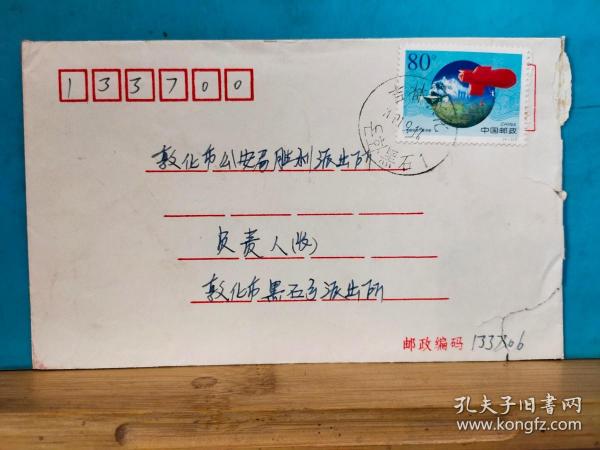 133700
80分
CHINA
中国邮政
敦化市公安局胜利派出所
负责人(收)
敦化市黑石乡派出所
邮政编码 133706
孔夫子旧书网
www.kongfz.com